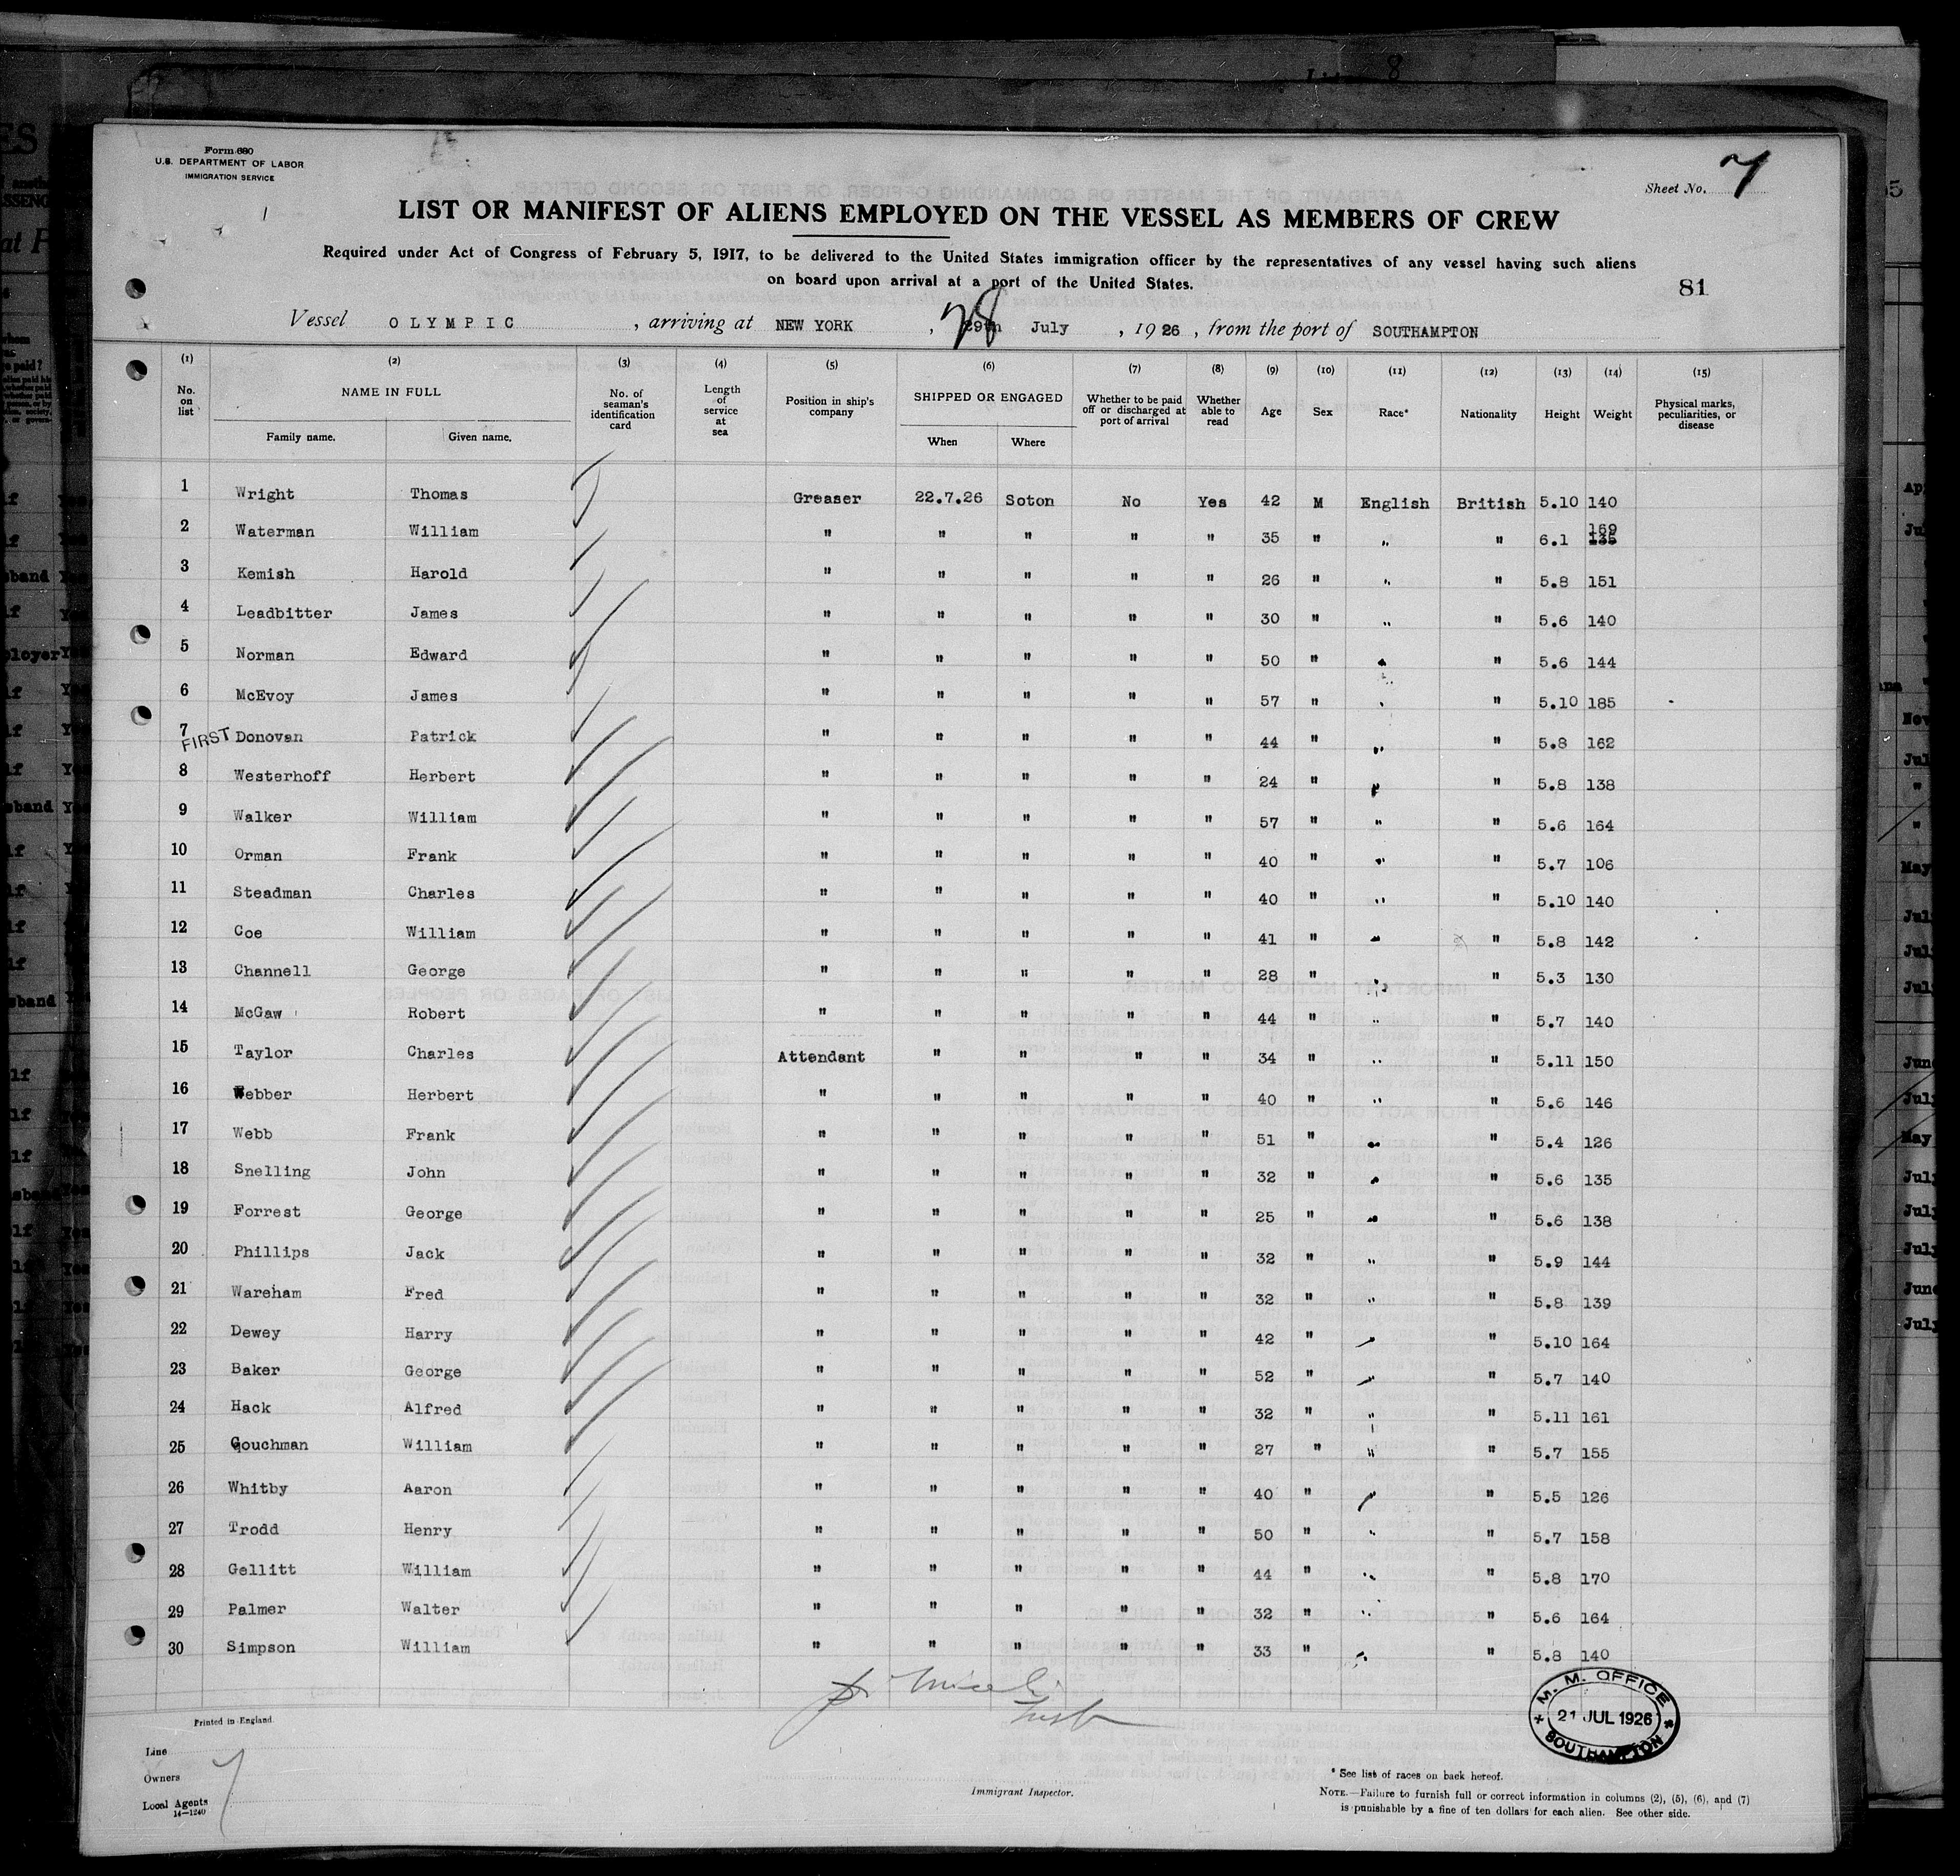 Form 680
U.S. DEPARTMENT OF LABOR
IMMIGRATION SERVICE
Sheet No. 7
LIST OR MANIFEST OF ALIENS EMPLOYED ON THE VESSEL AS MEMBERS OF CREW
Required under Act of Congress of February 5, 1917, to be delivered to the United States immigration officer by the representatives of any vessel having such aliens
on board upon arrival at a port of the United States.
81
Vessel OLYMPIC, arriving at NEW YORK, 28 29th July, 1926, from the port of SOUTHAMPTON
(1) (2) (3) (4) (5) (6) (7) (8) (9) (10) (11) (12) (13) (14) (15)
No. on list NAME IN FULL Family name. Given name. No. of seaman's identification card Length of service at sea Position in ship's company SHIPPED OR ENGAGED When Where Whether to be paid off or discharged at port of arrival Whether able to read Age Sex Race* Nationality Height Weight Physical marks, peculiarities, or disease
1 Wright Thomas Greaser 22.7.26 Soton No Yes 42 M English British 5.10 140
2 Waterman William " " " " " 35 " " " 6.1 169 135
3 Kemish Harold " " " " " 26 " " " 5.8 151
4 Leadbitter James " " " " " 30 " " " 5.6 140
5 Norman Edward " " " " " 50 " " " 5.6 144
6 McEvoy James " " " " " 57 " " " 5.10 185
7 FIRST Donovan Patrick " " " " " 44 " " " 5.8 162
8 Westerhoff Herbert " " " " " 24 " " " 5.8 138
9 Walker William " " " " " 57 " " " 5.6 164
10 Orman Frank " " " " " 40 " " " 5.7 106
11 Steadman Charles " " " " " 40 " " " 5.10 140
12 Coe William " " " " " 41 " " " 5.8 142
13 Channell George " " " " " 28 " " " 5.3 130
14 McGaw Robert " " " " " 44 " " " 5.7 140
15 Taylor Charles Attendant " " " " 34 " " " 5.11 150
16 Webber Herbert " " " " " 40 " " " 5.6 146
17 Webb Frank " " " " " 51 " " " 5.4 126
18 Snelling John " " " " " 32 " " " 5.6 135
19 Forrest George " " " " " 25 " " " 5.6 138
20 Phillips Jack " " " " " 32 " " " 5.9 144
21 Wareham Fred " " " " " 32 " " " 5.8 139
22 Dewey Harry " " " " " 42 " " " 5.10 164
23 Baker George " " " " " 52 " " " 5.7 140
24 Hack Alfred " " " " " 32 " " " 5.11 161
25 Gouchman William " " " " " 27 " " " 5.7 155
26 Whitby Aaron " " " " " 40 " " " 5.5 126
27 Trodd Henry " " " " " 50 " " " 5.7 158
28 Gellitt William " " " " " 44 " " " 5.8 170
29 Palmer Walter " " " " " 32 " " " 5.6 164
30 Simpson William " " " " " 33 " " " 5.8 140
M. M. OFFICE
21 JUL 1926
SOUTHAMPTON
Printed in England.
Line
Owners
Local Agents
14—1240
7
Immigrant Inspector.
* See list of races on back hereof.
NOTE.—Failure to furnish full or correct information in columns (2), (5), (6), and (7)
is punishable by a fine of ten dollars for each alien. See other side.